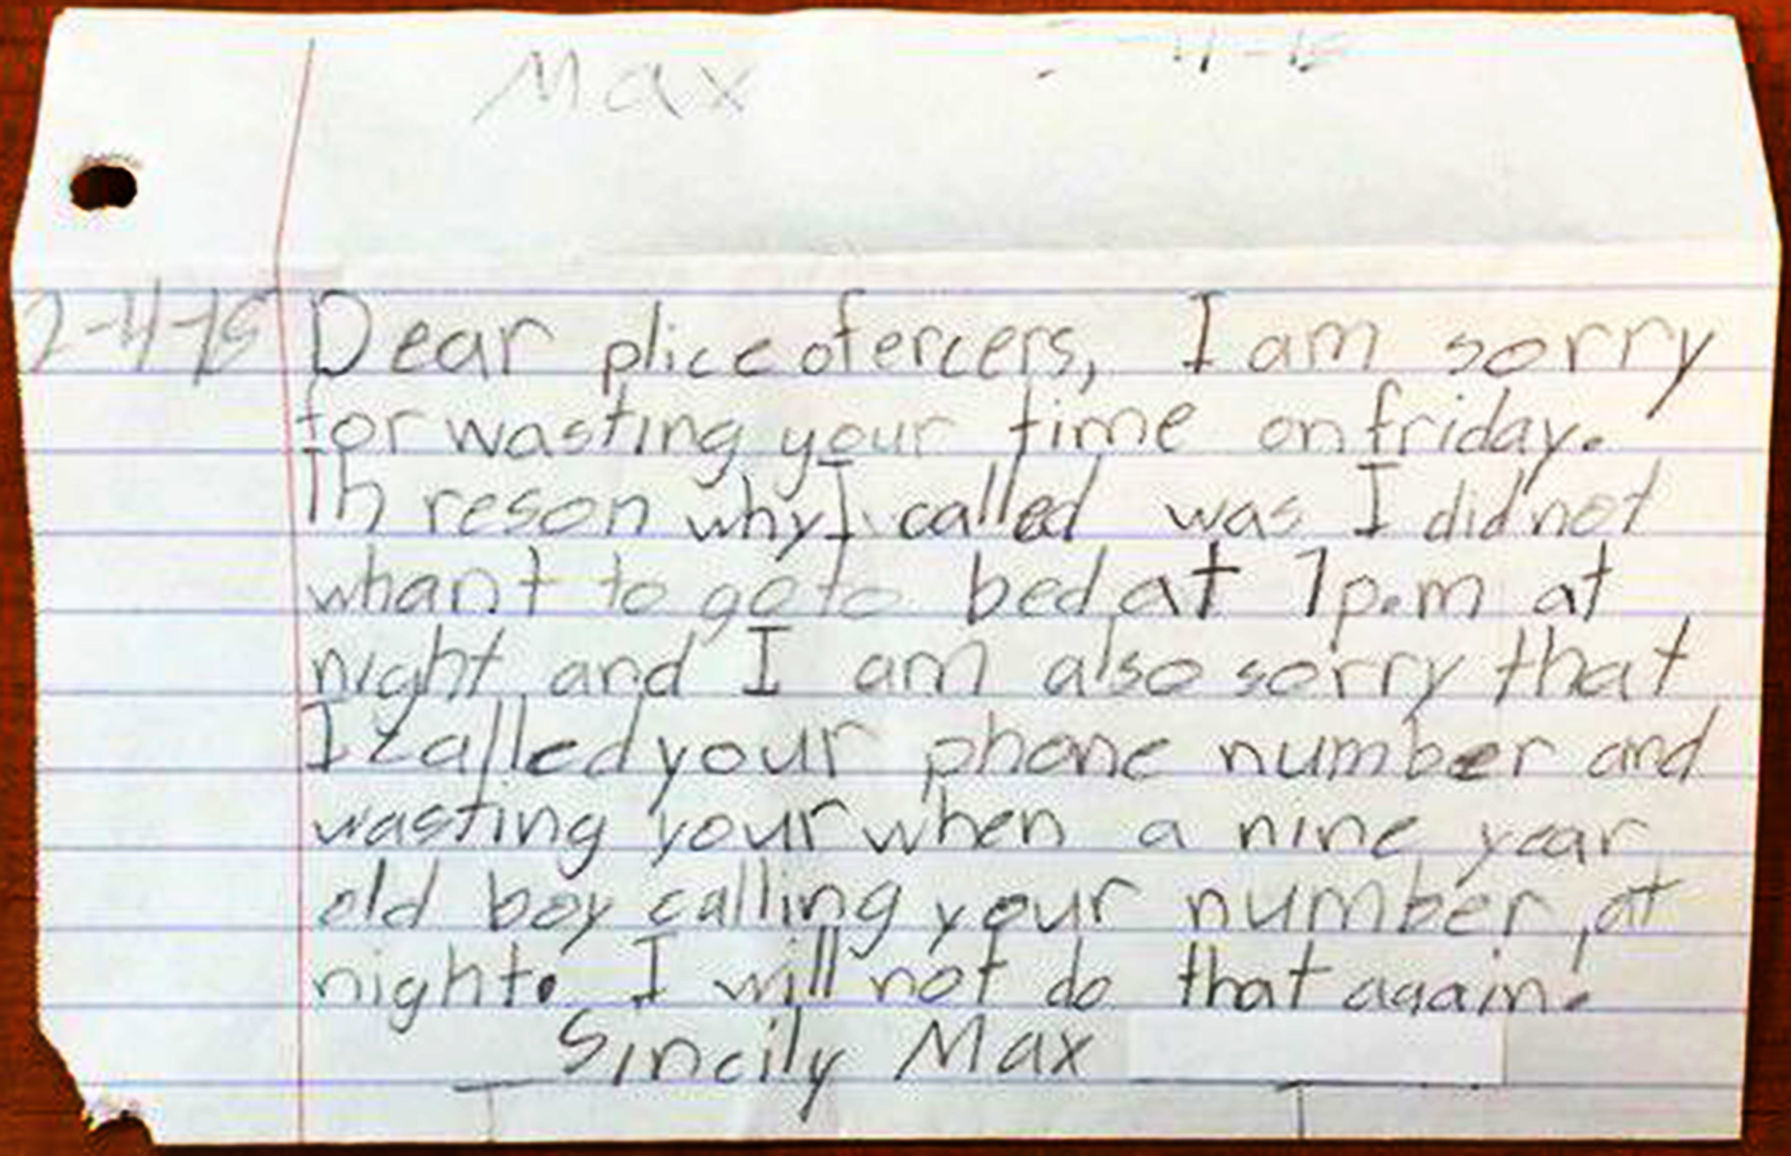 Max -4-15
2-4-15 Dear plice ofercers, I am sorry
for wasting your time on friday.
Th reson why I called was I did not
whant to go to bed at 7p.m at
night and I am also sorry that
I called your phone number and
wasting your when a nine year
old boy calling your number, at
night. I will not do that again.
Sincily Max